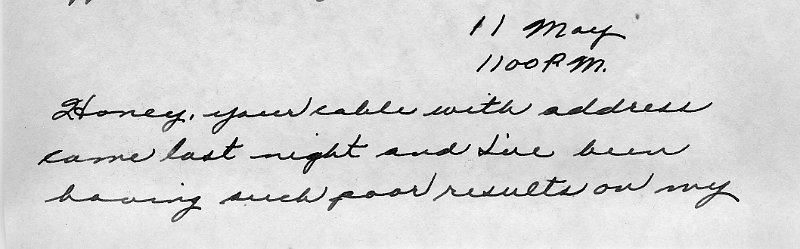 11 May
1100 P.M.
Honey, your cable with address
came last night and I've been
having such poor results on my